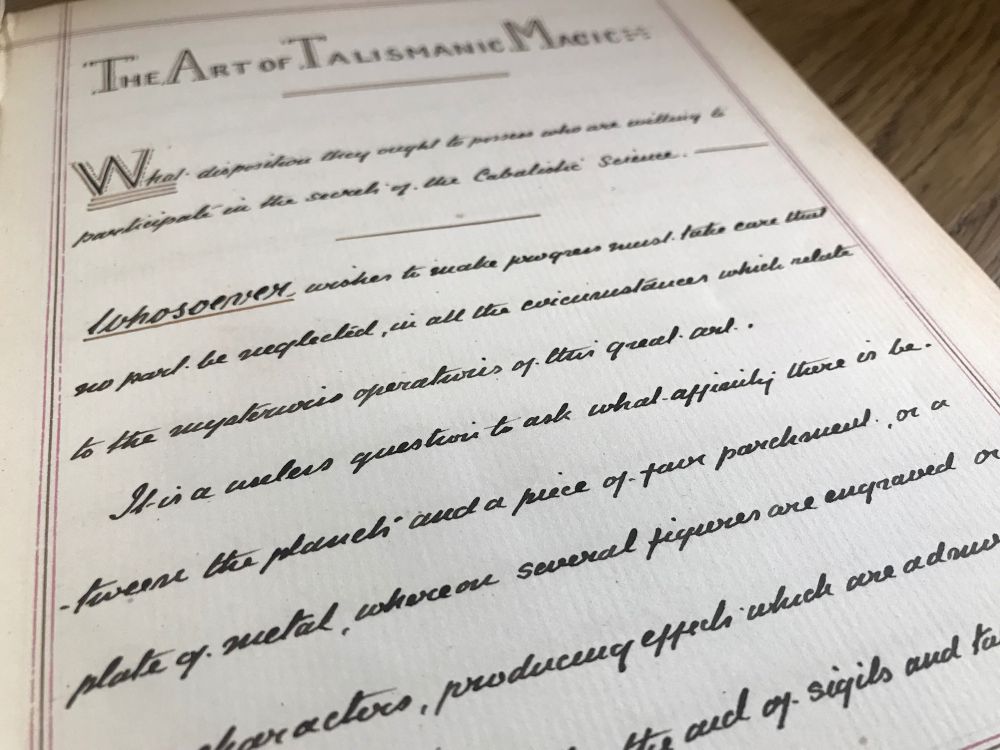 The Art of Talismanic Magic
What disposition they ought to possess who are willing to
participate in the secrets of the Cabalistic Science.
Whosoever wishes to make progress must take care that
no part be neglected, in all the circumstances which relate
to the mysterious operations of this great art.
It is a useless question to ask what affinity there is be-
-tween the planets and a piece of fair parchment, or a
plate of metal, whereon several figures are engraved or
characters, producing effects which are
the aid of sigils and